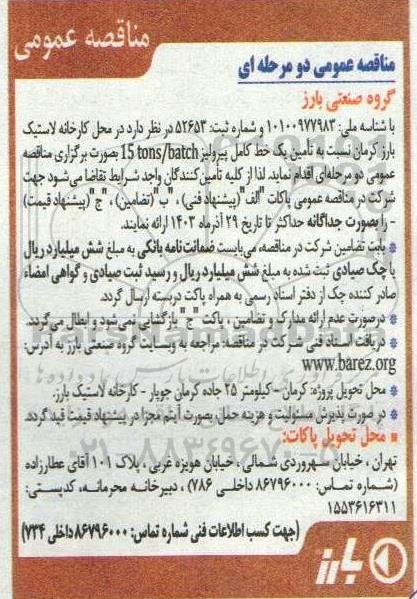 مناقصه عمومی
مناقصه عمومی دو مرحله ای
گروه صنعتی بارز
با شناسه ملی: ۱۰۱۰۰۹۷۷۹۸۳ و شماره ثبت: ۵۲۶۵۳ در نظر دارد در محل کارخانه لاستیک
بارز کرمان نسبت به تأمین یک خط کامل پیرولیز 15 tons/batch بصورت برگزاری مناقصه
عمومی دو مرحله‌ای اقدام نماید. لذا از کلیه تأمین کنندگان واجد شرایط تقاضا می‌شود جهت
شرکت در مناقصه عمومی پاکات "الف"(پیشنهاد فنی) ، "ب"(تضامین) ، "ج"(پیشنهاد قیمت)
- را بصورت جداگانه حداکثر تا تاریخ ۲۹ آذرماه ۱۴۰۳ ارائه نمایند.
بابت تضامین شرکت در مناقصه، می‌بایست ضمانت نامه بانکی به مبلغ شش میلیارد ریال
یا چک صیادی ثبت شده به مبلغ شش میلیارد ریال و رسید ثبت صیادی و گواهی امضاء
صادر کننده چک از دفتر اسناد رسمی به همراه پاکت دربسته ارسال گردد.
درصورت عدم ارائه مدارک و تضامین ، پاکت "ج" بازگشایی نمی‌شود و ابطال می‌گردد.
دریافت اسناد فنی شرکت در مناقصه: مراجعه به وبسایت گروه صنعتی بارز به آدرس:
www.barez.org
محل تحویل پروژه: کرمان - کیلومتر ۲۵ جاده کرمان جوپار - کارخانه لاستیک بارز.
در صورت پذیرش مسئولیت و هزینه حمل بصورت آیتم مجزا در پیشنهاد قیمت قید گردد.
محل تحویل پاکات:
تهران ، خیابان سهروردی شمالی ، خیابان هویزه غربی ، پلاک ۱۰۱ آقای عطارزاده
(شماره تماس: ۸۶۷۹۶۰۰۰ داخلی ۷۸۶) ، دبیرخانه محرمانه، کدپستی:
۱۵۵۳۶۱۶۳۱۱
(جهت کسب اطلاعات فنی شماره تماس: ۸۶۷۹۶۰۰۰ داخلی ۷۳۴)
بارز